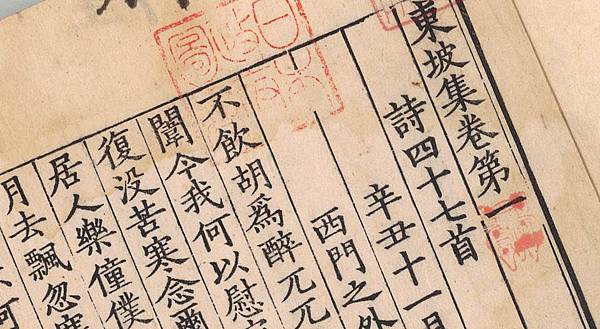 東坡集卷第一
詩四十七首
辛丑十一月
西門之外
不飲胡爲醉兀兀
闈今我何以慰
復没苦寒念
居人樂僮僕
月去飄忽